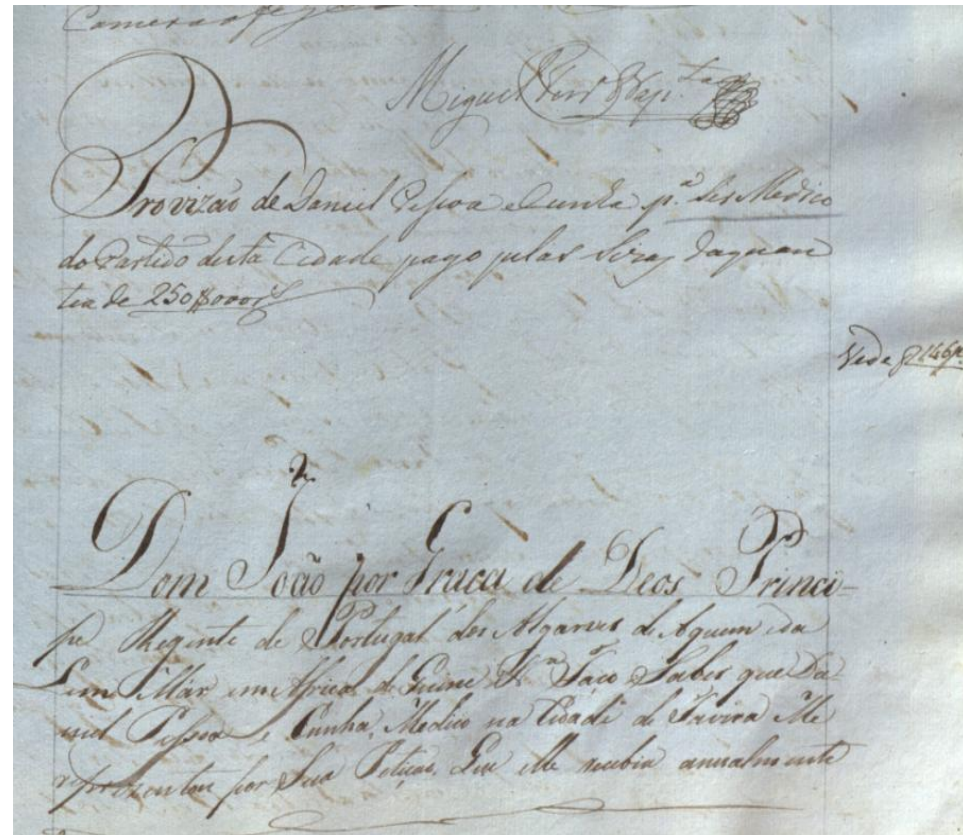 Camera a fe
Miguel Ferrª
Provizaõ de Daniel Pessoa e Cunha pª. ser Medico
do Partido desta Cidade pago pelas Sizas daquan
tia de 250$000 rˢ
Vide f
Dom João por Graça de Deos Princi-
pe Regente de Portugal dos Algarves de Aquem e da
Lem Mar em Africa de Guine &ª Faço Saber que Da-
niel Pessoa e Cunha, Medico na Cidade de Tavira Me
reprezentou por Sua Petiçaõ Que elle recebia anualmente